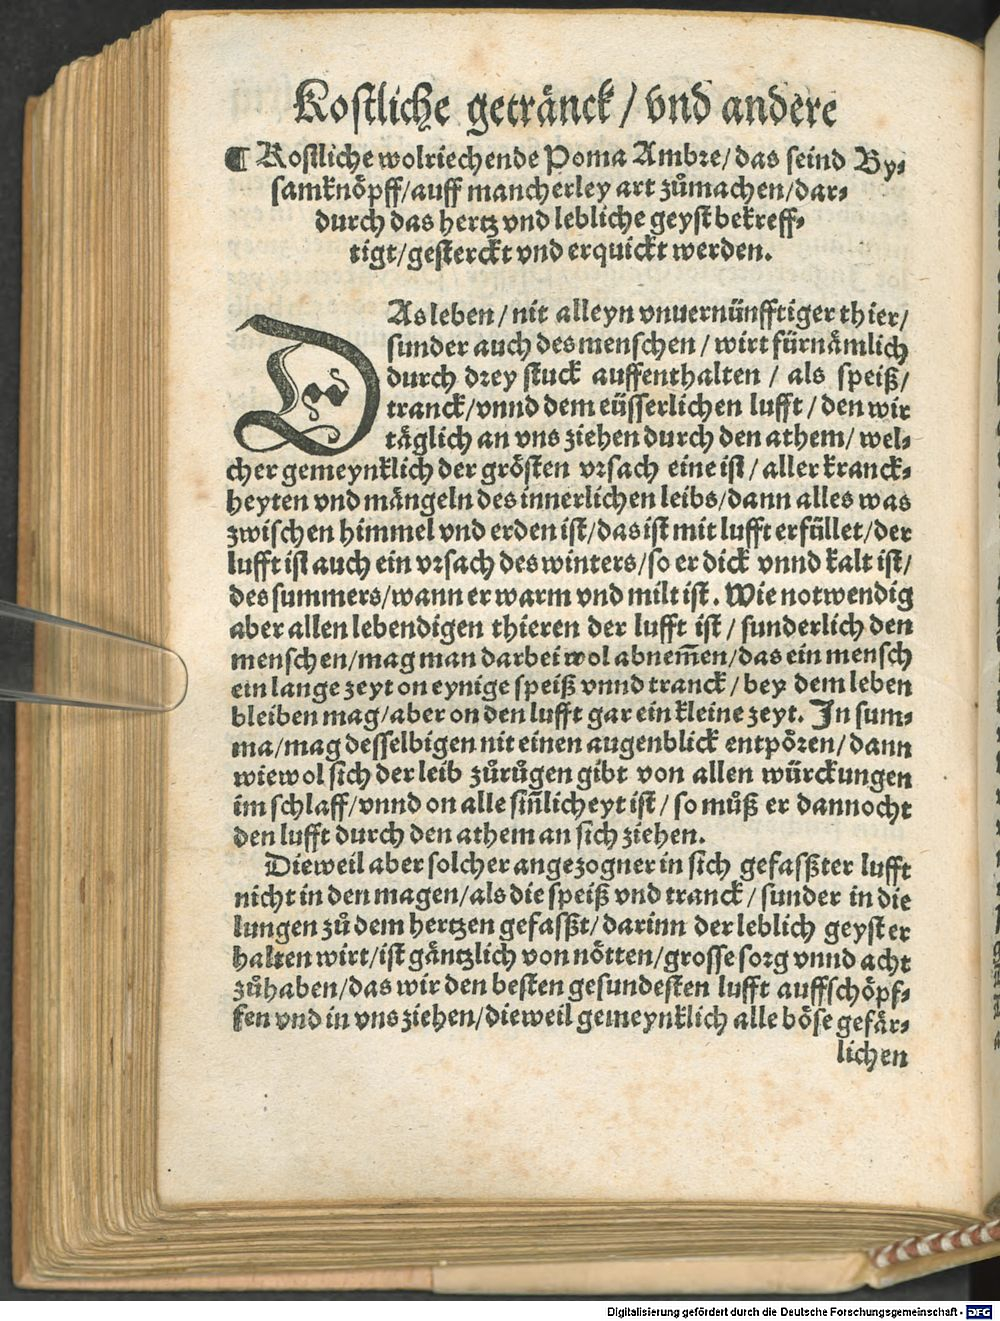 Kostliche getränck / vnd andere
¶ Kostliche wolriechende Poma Ambre/das seind By-
samknöpff/auff mancherley art zůmachen/dar-
durch das hertz vnd lebliche geyst bekreff-
tigt/gesterckt vnd erquickt werden.
DAs leben/ nit alleyn vnuernünfftiger thier/
sunder auch des menschen / wirt fürnämlich
durch drey stuck auffenthalten / als speiß/
tranck/vnnd dem eüsserlichen lufft / den wir
täglich an vns ziehen durch den athem/ wel-
cher gemeynklich der grösten vrsach eine ist / aller kranck-
heyten vnd mängeln des innerlichen leibs/dann alles was
zwischen himmel vnd erden ist/das ist mit lufft erfüllet/der
lufft ist auch ein vrsach des winters/so er dick vnnd kalt ist/
des summers/wann er warm vnd milt ist. Wie notwendig
aber allen lebendigen thieren der lufft ist / sunderlich den
menschen/mag man darbei wol abnem̄en/das ein mensch
ein lange zeyt on eynige speiß vnnd tranck / bey dem leben
bleiben mag/aber on den lufft gar ein kleine zeyt. In sum-
ma/mag desselbigen nit einen augenblick entpören/dann
wiewol sich der leib zůrůgen gibt von allen würckungen
im schlaff/vnnd on alle sin̄licheyt ist / so můß er dannocht
den lufft durch den athem an sich ziehen.
Dieweil aber solcher angezogner in sich gefasßter lufft
nicht in den magen/als die speiß vnd tranck / sunder in die
lungen zů dem hertzen gefasßt/darinn der leblich geyst er
halten wirt/ist gäntzlich von nötten/grosse sorg vnnd acht
zůhaben/das wir den besten gesundesten lufft auffschöpf-
fen vnd in vns ziehen/dieweil gemeynklich alle böse gefär-
lichen
Digitalisierung gefördert durch die Deutsche Forschungsgemeinschaft - DFG